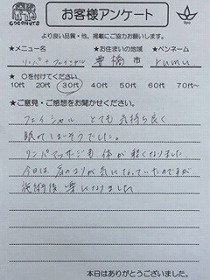 COCONUTS
お客様アンケート
より良い品質・他、掲載にご協力お願いします。
★メニュー名 ★お住まいの地域 ★ペンネーム
リンパ+フェイシャル 豊橋 市 rumu
★○を付けてください
10代 20代 30代 40代 50代 60代 70代~
★ご意見・ご感想をお聞かせください。
フェイシャル とても気持ち良く
眠ってしまいそうでした。
リンパマッサージも 体が軽くなりました
今日は 肩のはりが気になっていたのですが
施術後 楽になりました
本日はありがとうございました。